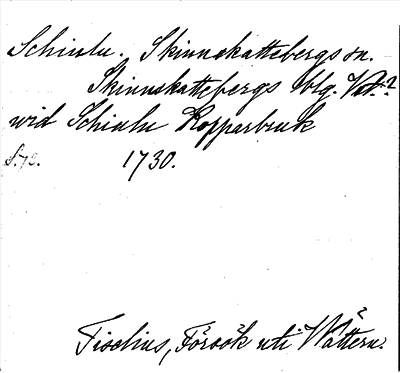 Schisslu. Skinnskattebergs sn.
Skinnskattebergs blg. Vst.?
wid Schisslu Kopparbruk
S. 73. 1730.
Tiselius, Försök uti Wättern.